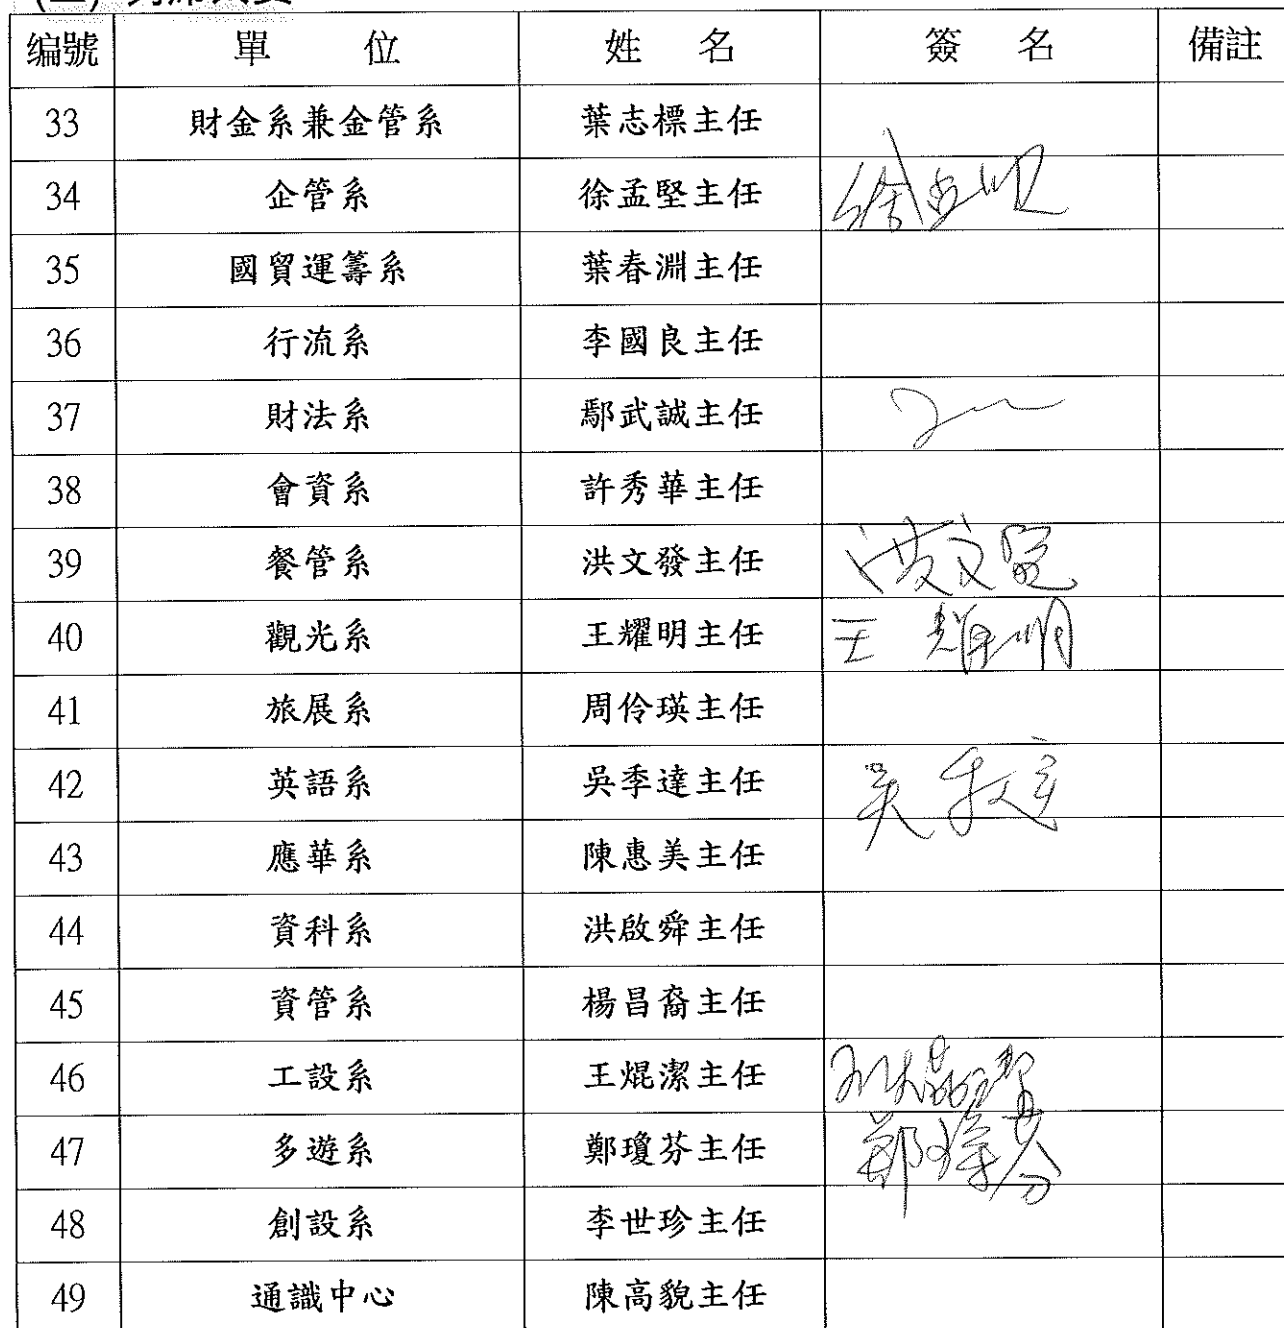 编號 單 位 姓 名 簽 名 備註
33 財金系兼金管系 葉志標主任
34 企管系 徐孟堅主任 徐孟堅
35 國貿運籌系 葉春淵主任
36 行流系 李國良主任
37 財法系 鄢武誠主任
38 會資系 許秀華主任
39 餐管系 洪文發主任 洪文發
40 觀光系 王耀明主任 王耀明
41 旅展系 周伶瑛主任
42 英語系 吳季達主任 吳季達
43 應華系 陳惠美主任
44 資科系 洪啟舜主任
45 資管系 楊昌裔主任
46 工設系 王焜潔主任 王焜潔
47 多遊系 鄭瓊芬主任 鄭瓊芬
48 創設系 李世珍主任
49 通識中心 陳高貌主任